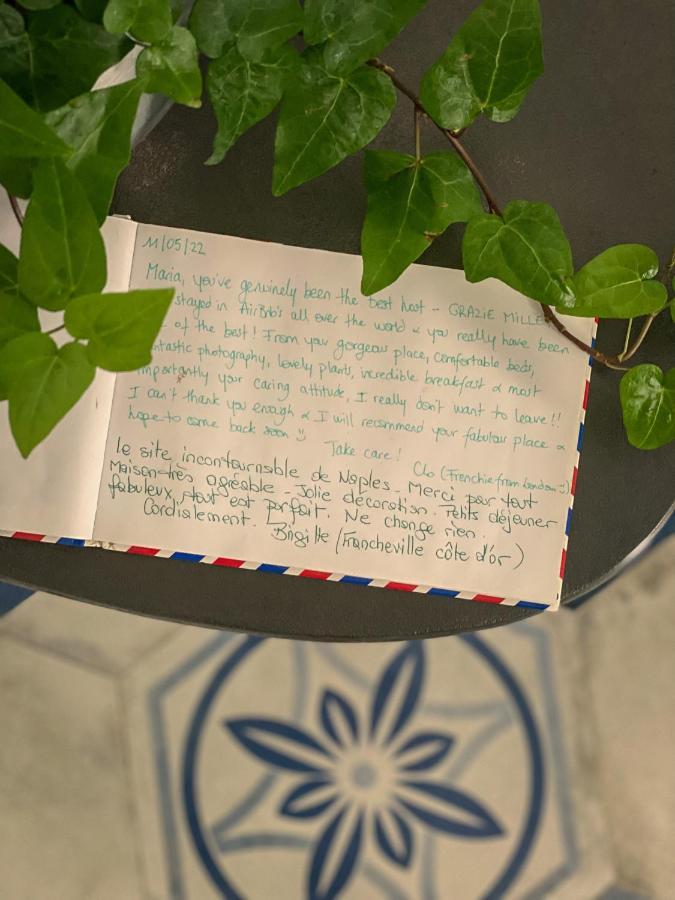 11/05/22
Maria, you've genuinely been the best host - GRAZiE MiLLE
stayed in AirBnb's all over the world & you really have been
of the best! From your gorgeous place, comfortable beds,
ntastic photography, lovely plants, incredible breakfast & most
mportantly your caring attitude, I really don't want to leave!!
I can't thank you enough & I will recommend your fabulous place &
hope to come back soon :)
Take care!
Clo (Frenchie from London :))
le site incontournable de Naples. Merci pour tout
Maison très agréable - Jolie décoration. Petits déjeuner
fabuleux, tout est parfait. Ne change rien.
Cordialement. Brigitte (Francheville côte d'or)